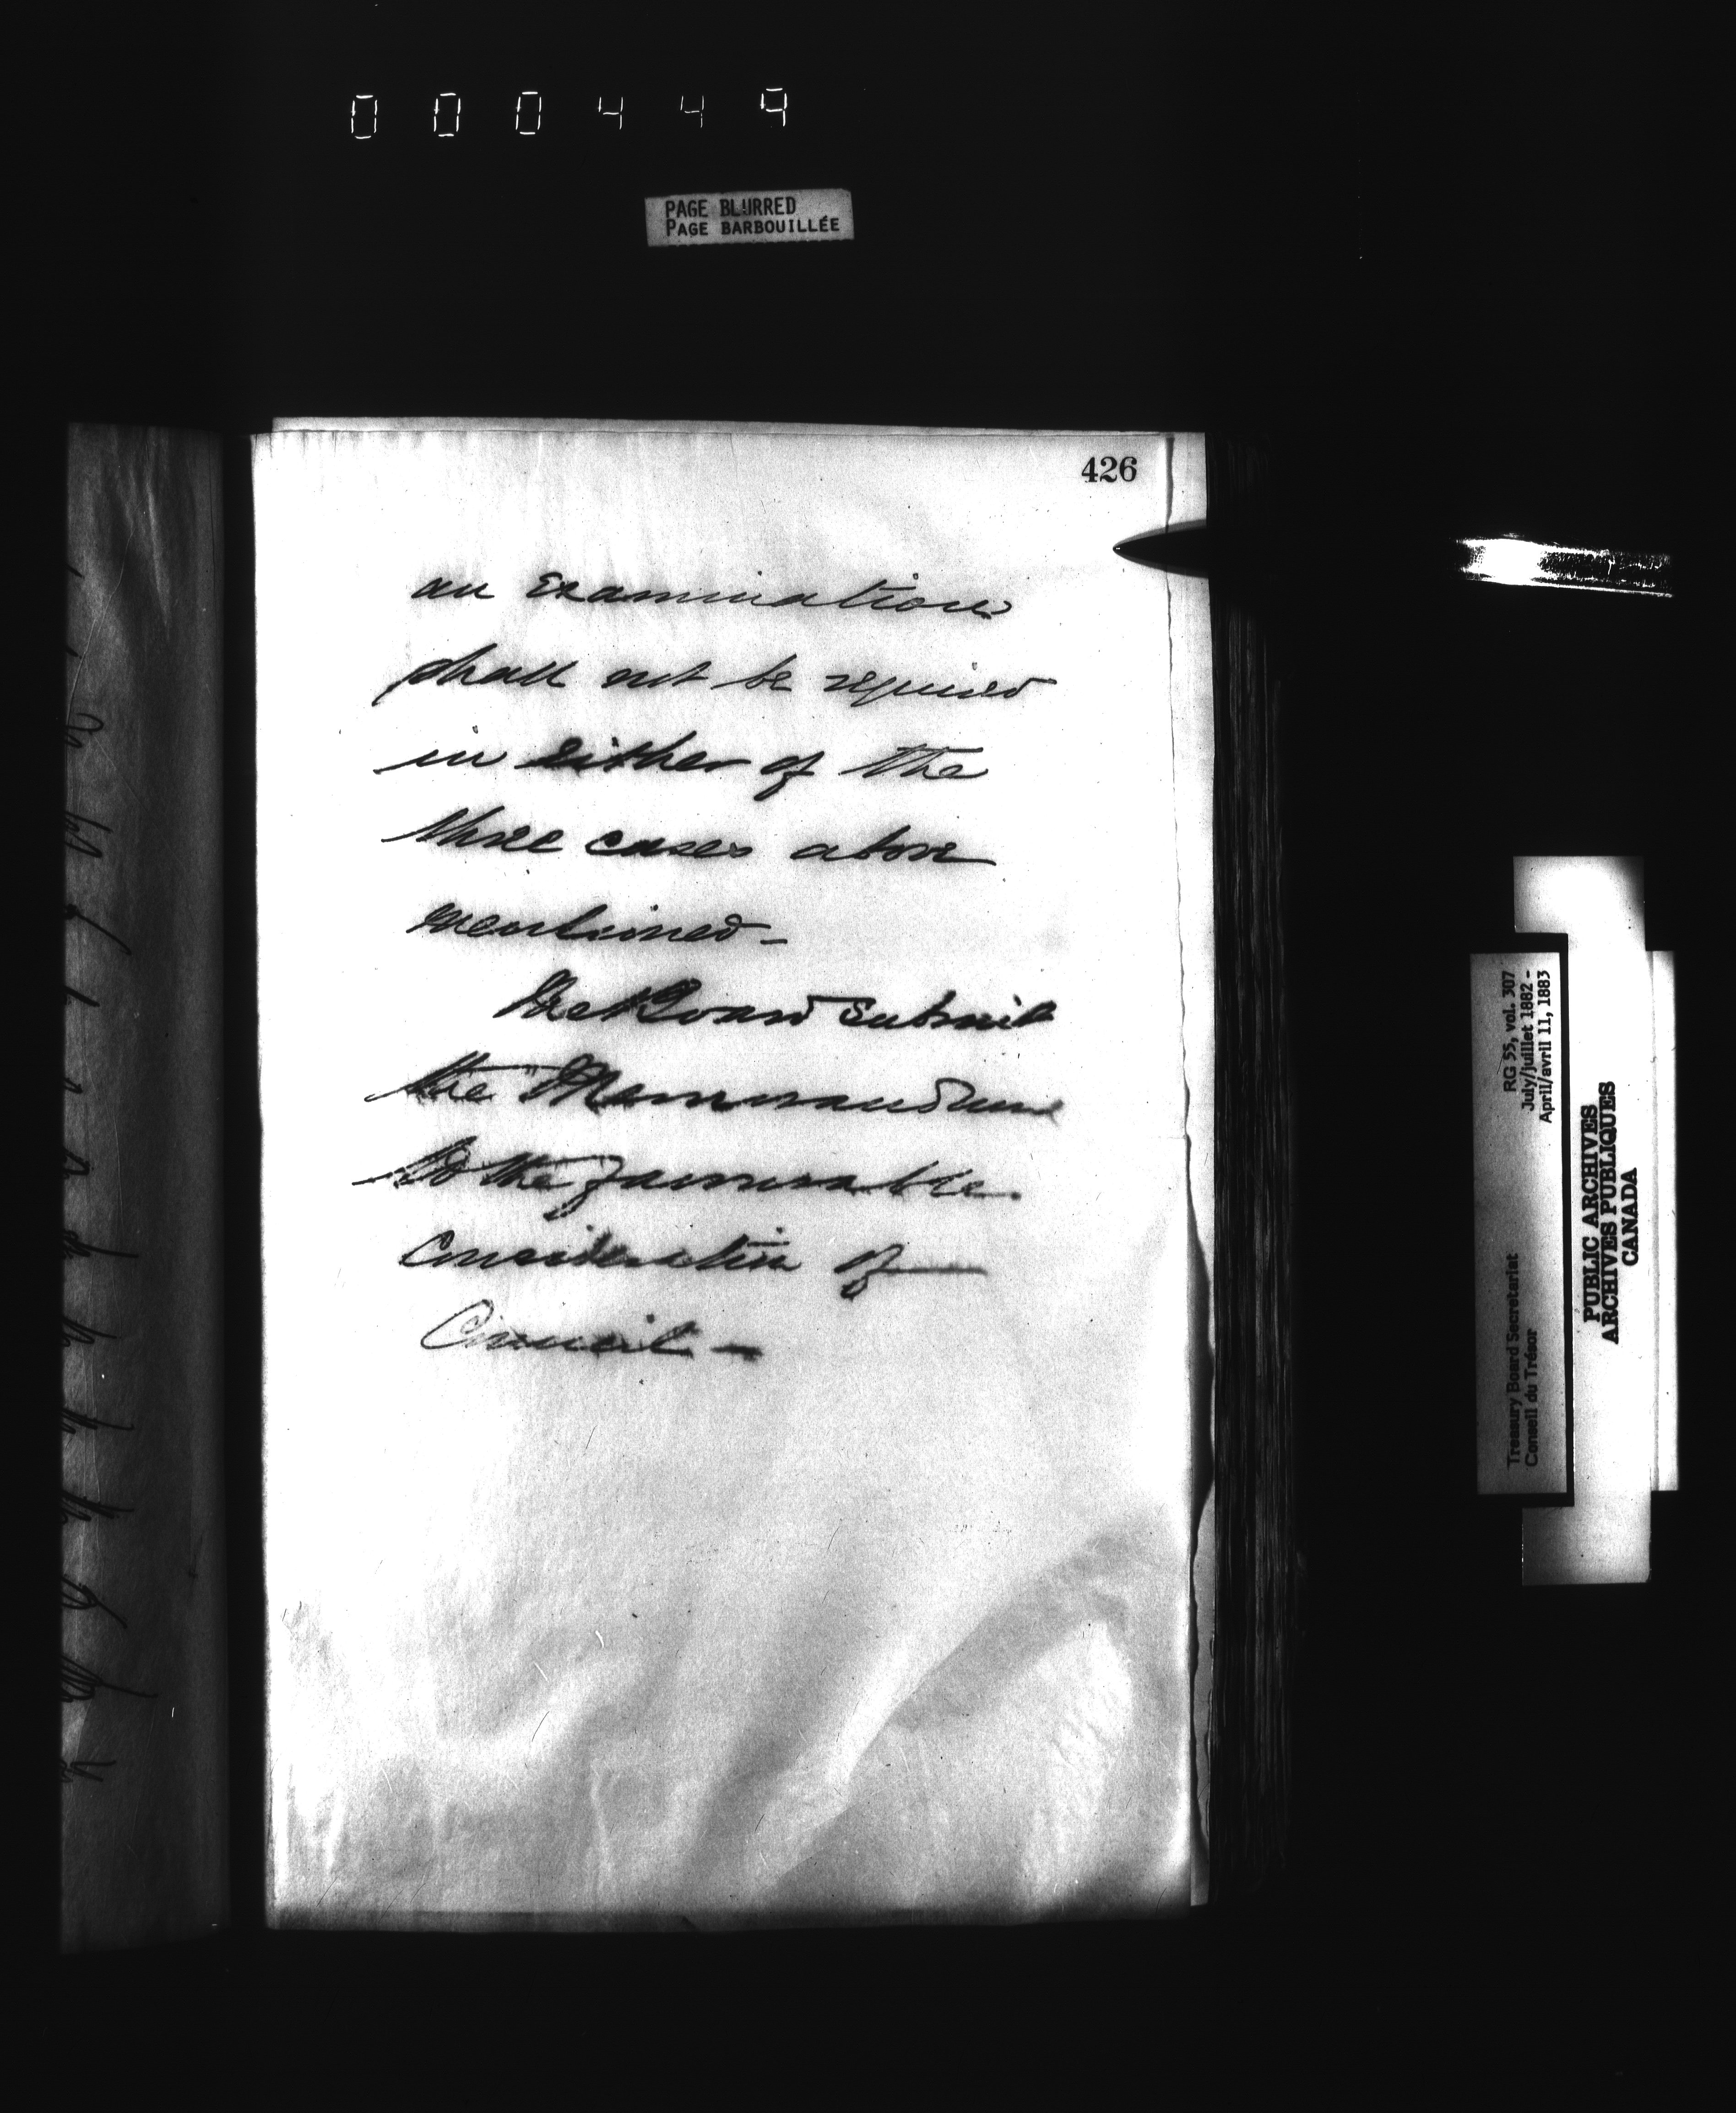 000449
PAGE BLURRED
PAGE BARBOUILLÉE
426
an examination
shall not be required
in either of the
three cases above
mentioned –
The Board submit
the Memorandum
to the favourable
Consideration of
Council –
RG 55, vol. 307
July/juillet 1882 -
April/avril 11, 1883
Treasury Board Secretariat
Conseil du Trésor
PUBLIC ARCHIVES
ARCHIVES PUBLIQUES
CANADA